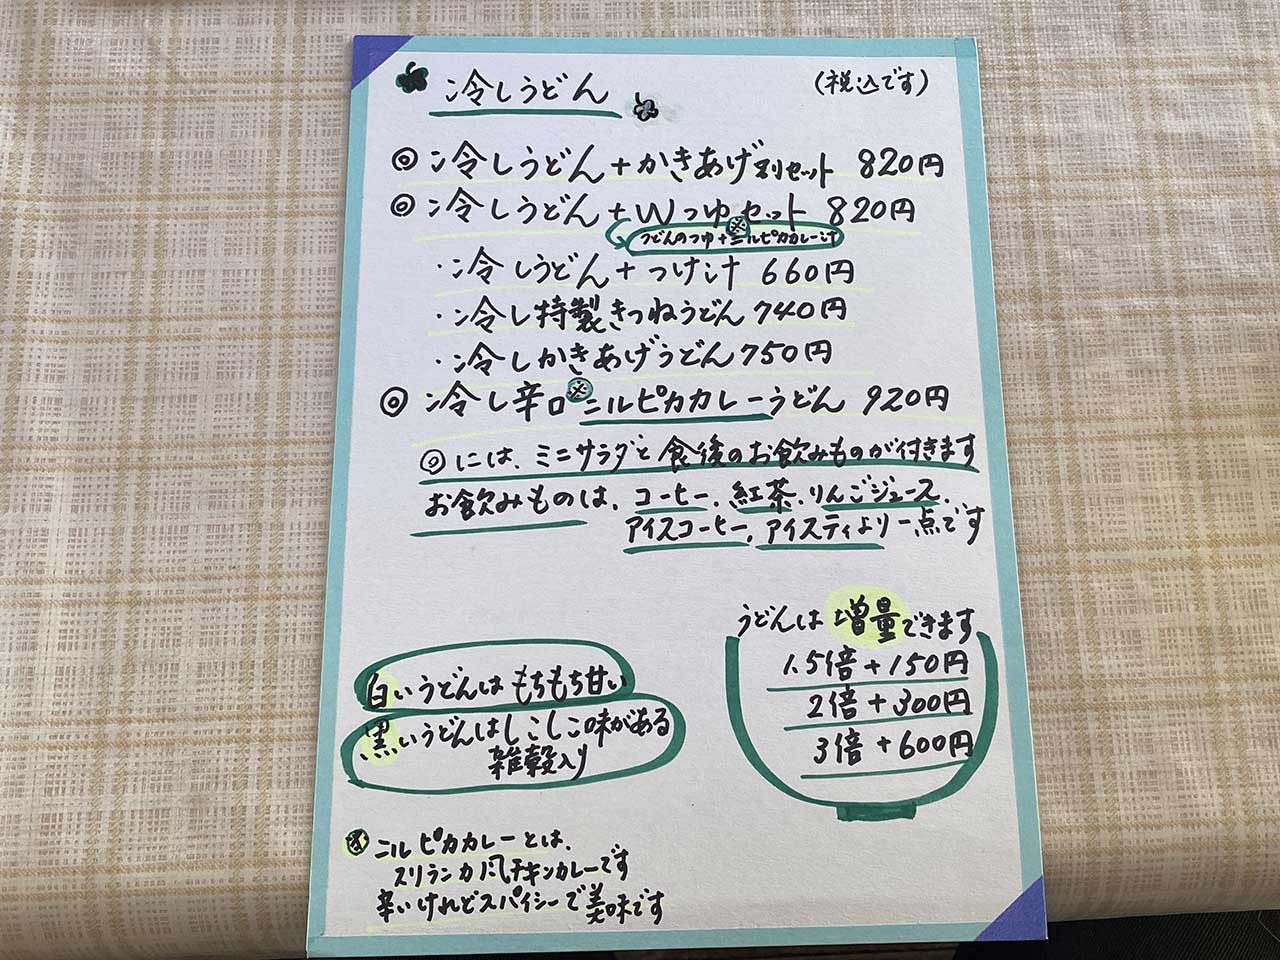 冷しうどん (税込です)
◎冷しうどん+かきあげ別セット 820円
◎冷しうどん+Wつゆセット 820円
うどんのつゆ+※ニルピカカレー汁
・冷しうどん+つけ汁 660円
・冷し特製きつねうどん740円
・冷しかきあげうどん750円
◎冷し辛口※ニルピカカレーうどん 920円
◎には、ミニサラダと食後のお飲みものが付きます
お飲みものは、コーヒー、紅茶、りんごジュース、
アイスコーヒー、アイスティより一点です
うどんは増量できます
1.5倍+150円
2倍+300円
3倍+600円
白いうどんはもちもち甘い
黒いうどんはしこしこ味がある
雑穀入り
※ニルピカカレーとは、
スリランカ風チキンカレーです
辛いけれどスパイシーで美味です